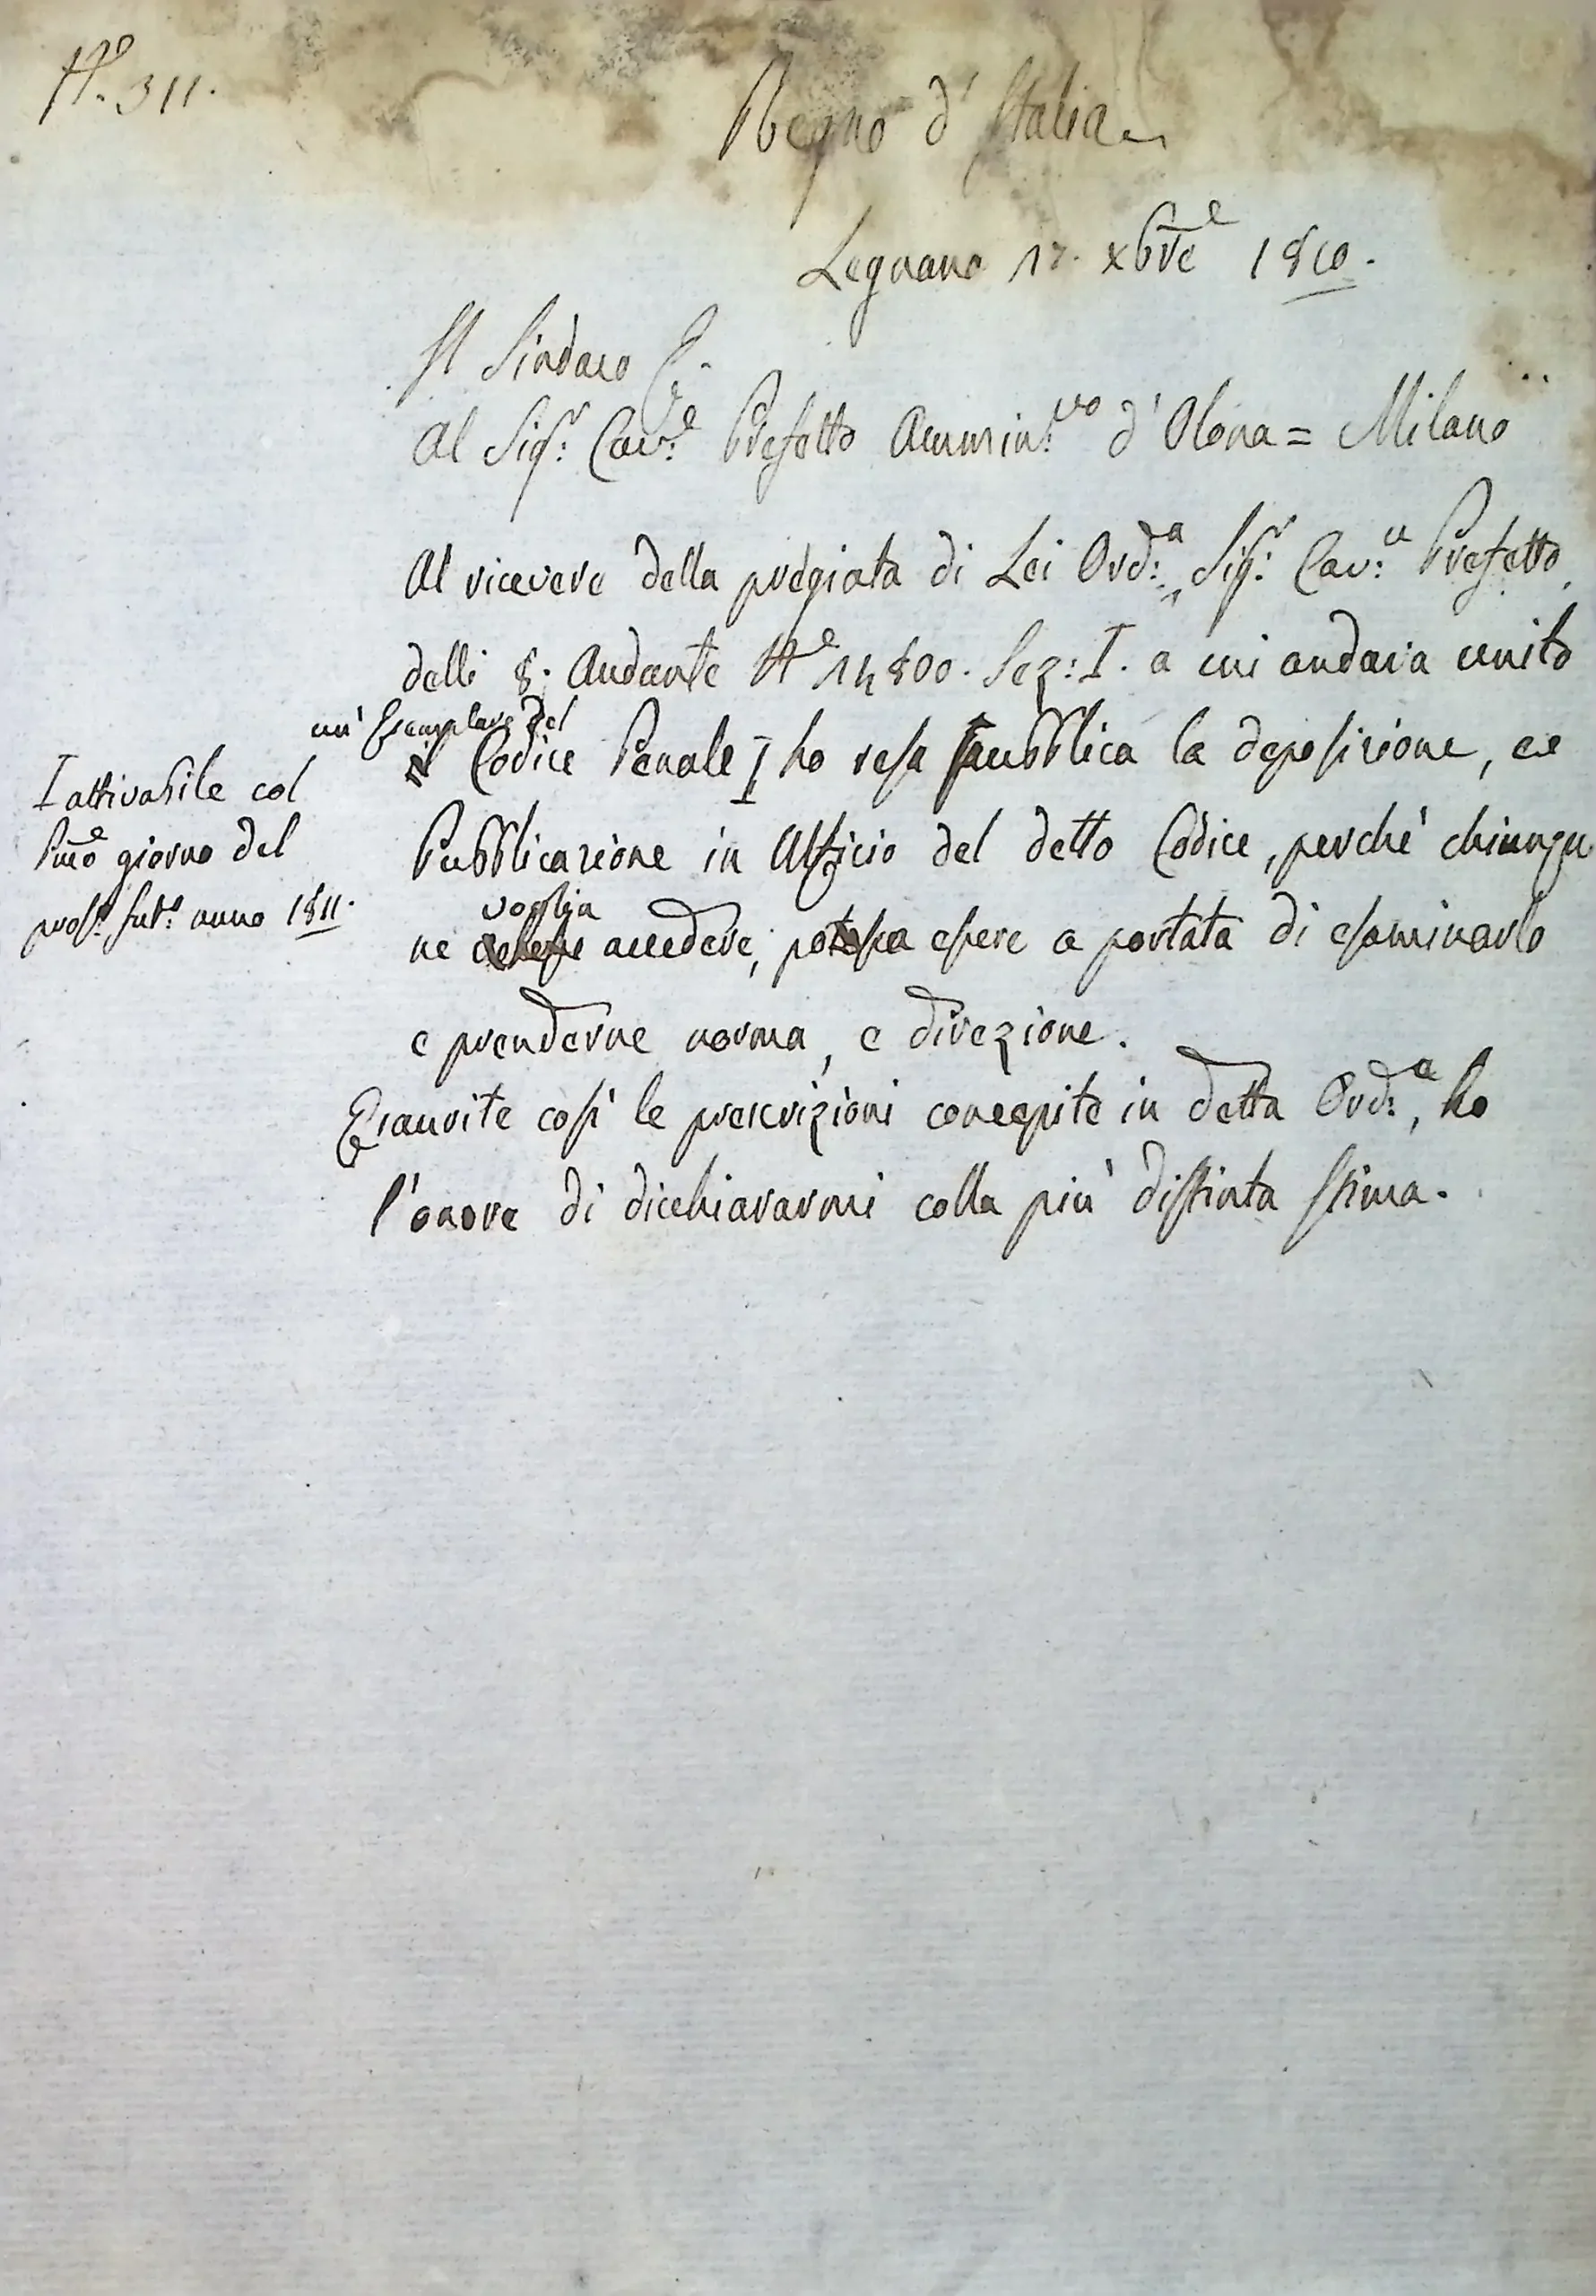 N.º 311.
Regno d'Italia
Legnano 17. xbre 1810.
Il Sindaco
Al Sig.r Cav.e Prefetto Ammin.vo d'Olona = Milano
Al ricevere della pregiata di Lei Ord.a, Sig.r Cav.e Prefetto
delli 8. Andante N.º 14800. Sez: I. a cui andava unito
un' Esemplare del
il Codice Penale I ho resa pubblica la deposizione, e
Pubblicazione in Uffizio del detto Codice, perchè chiunqu
voglia
ne accedere, possa essere a portata di esaminarlo
e prenderne norma, e direzione.
Esaurite così le prescrizioni concepite in detta Ord.a, ho
l'onore di dicchiararmi colla più distinta stima.
I attivabile col
Pmo giorno del
pros.º fut.º anno 1811.